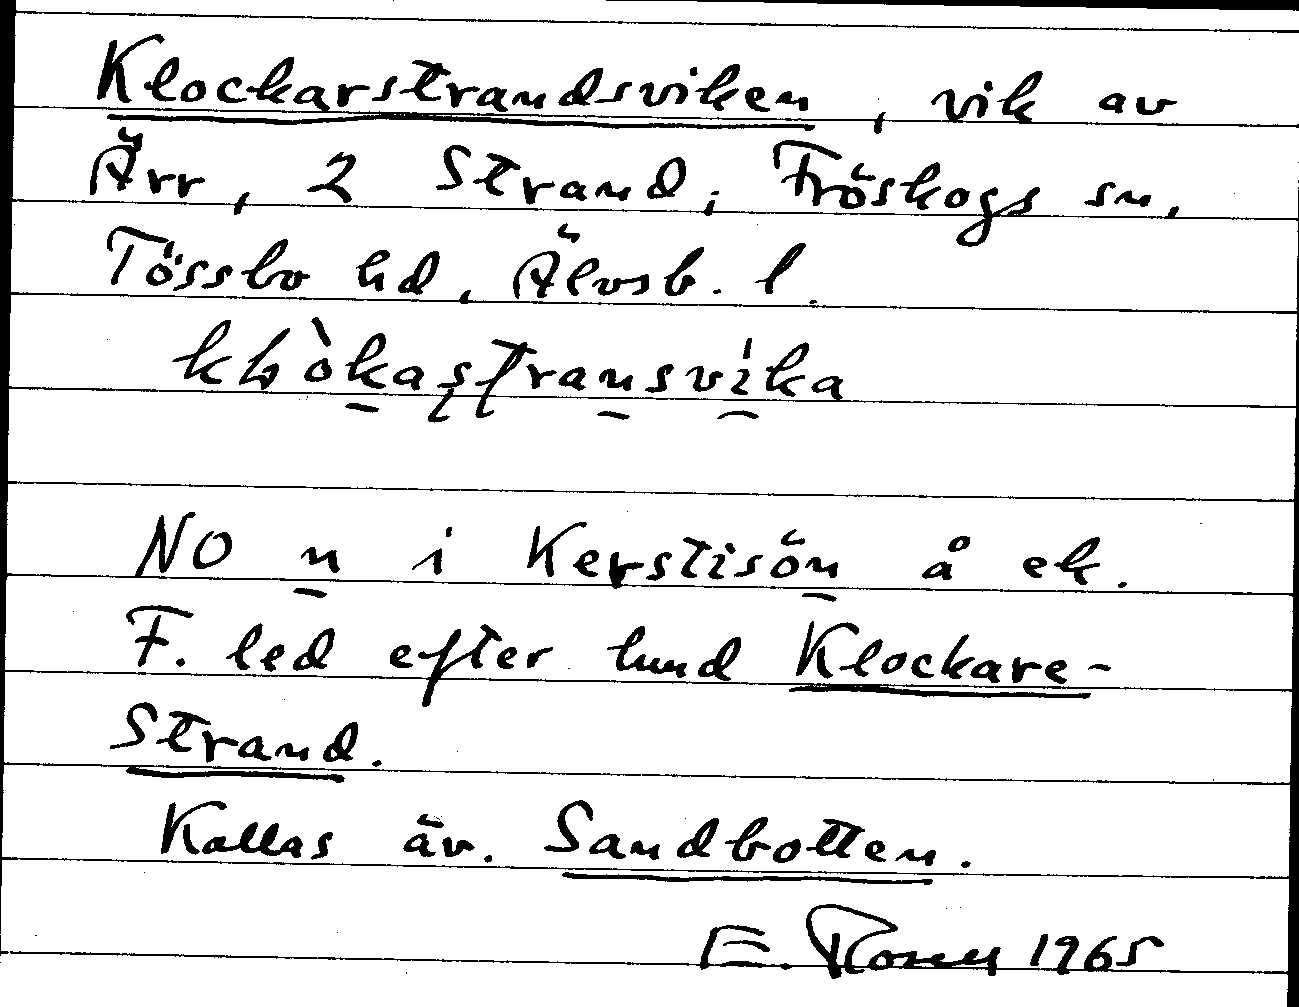 Klockarstrandsviken, vik av
Ärr, 2 Strand, Fröskogs sn,
Tössbo hd, Älvsb. l.
NO n i Kerstisön å ek.
F. led efter hmd Klockare-
Strand.
Kallas äv. Sandbotten.
E. 1965